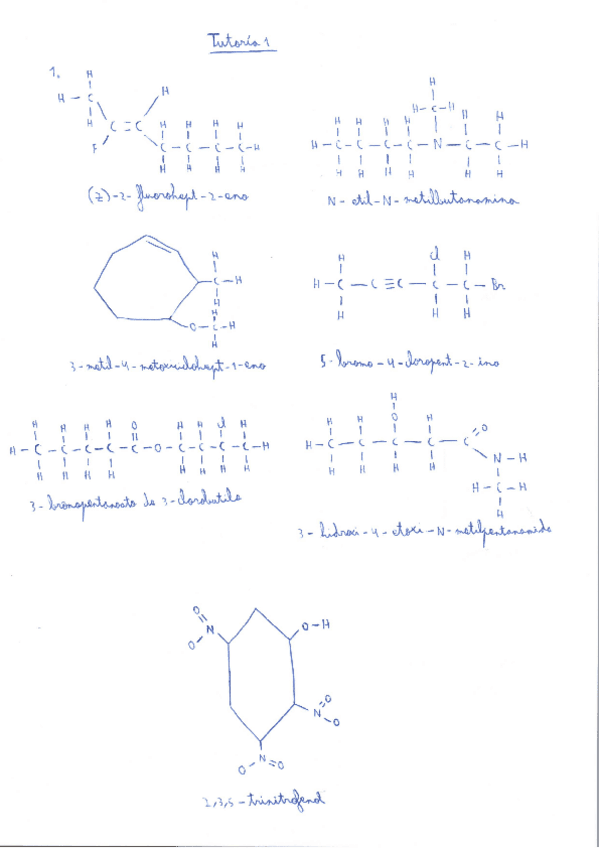 Tutoría 1
1.
H
H - C H
H
C = C
F
H H H H
C - C - C - C - H
H H H H
(Z)-2-fluorohept-2-eno
H
H - C - H
H H H H H H
H - C - C - C - C - N - C - C - H
H H H H H H
N-etil-N-metilbutanamina
H
C - H
H
H
O - C - H
H
3-metil-4-metoxiciclohept-1-eno
H Cl H
H - C - C ≡ C - C - C - Br
H H H
5-bromo-4-cloropent-2-ino
H H H H O H H Cl H
H - C - C - C - C - C - O - C - C - C - C - H
H H H H H H H H
3-bromopentanoato de 3-clorobutilo
H
H H O H O
H - C - C - C - C - C
H H H H N - H
H - C - H
H
3-hidroxi-4-etoxi-N-metilpentanamida
O
N
O
O - H
N = O
O
N
O = O
2,3,5-trinitrofenol